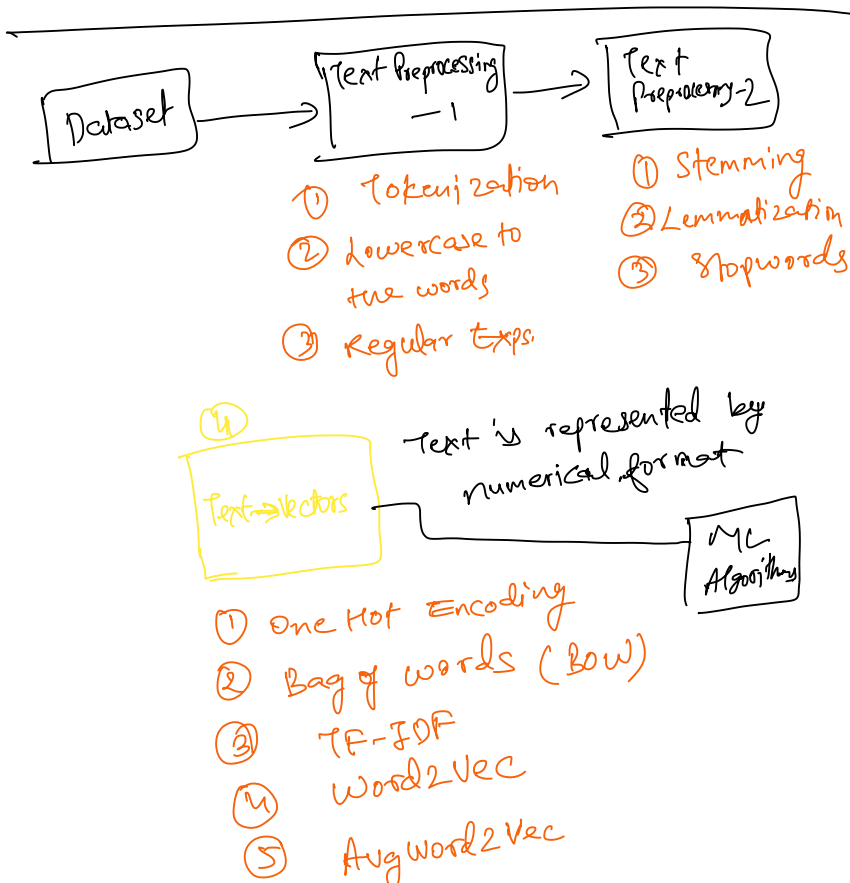 Dataset
Text Preprocessing
-1
Text
Preprocessing-2
① Tokenization
② Lowercase to
the words
③ Regular Exps.
① Stemming
② Lemmatization
③ Stopwords
④
Text→Vectors
Text is represented by
numerical format
ML
Algorithms
① One Hot Encoding
② Bag of words (BOW)
③ TF-IDF
④ Word2Vec
⑤ AvgWord2Vec